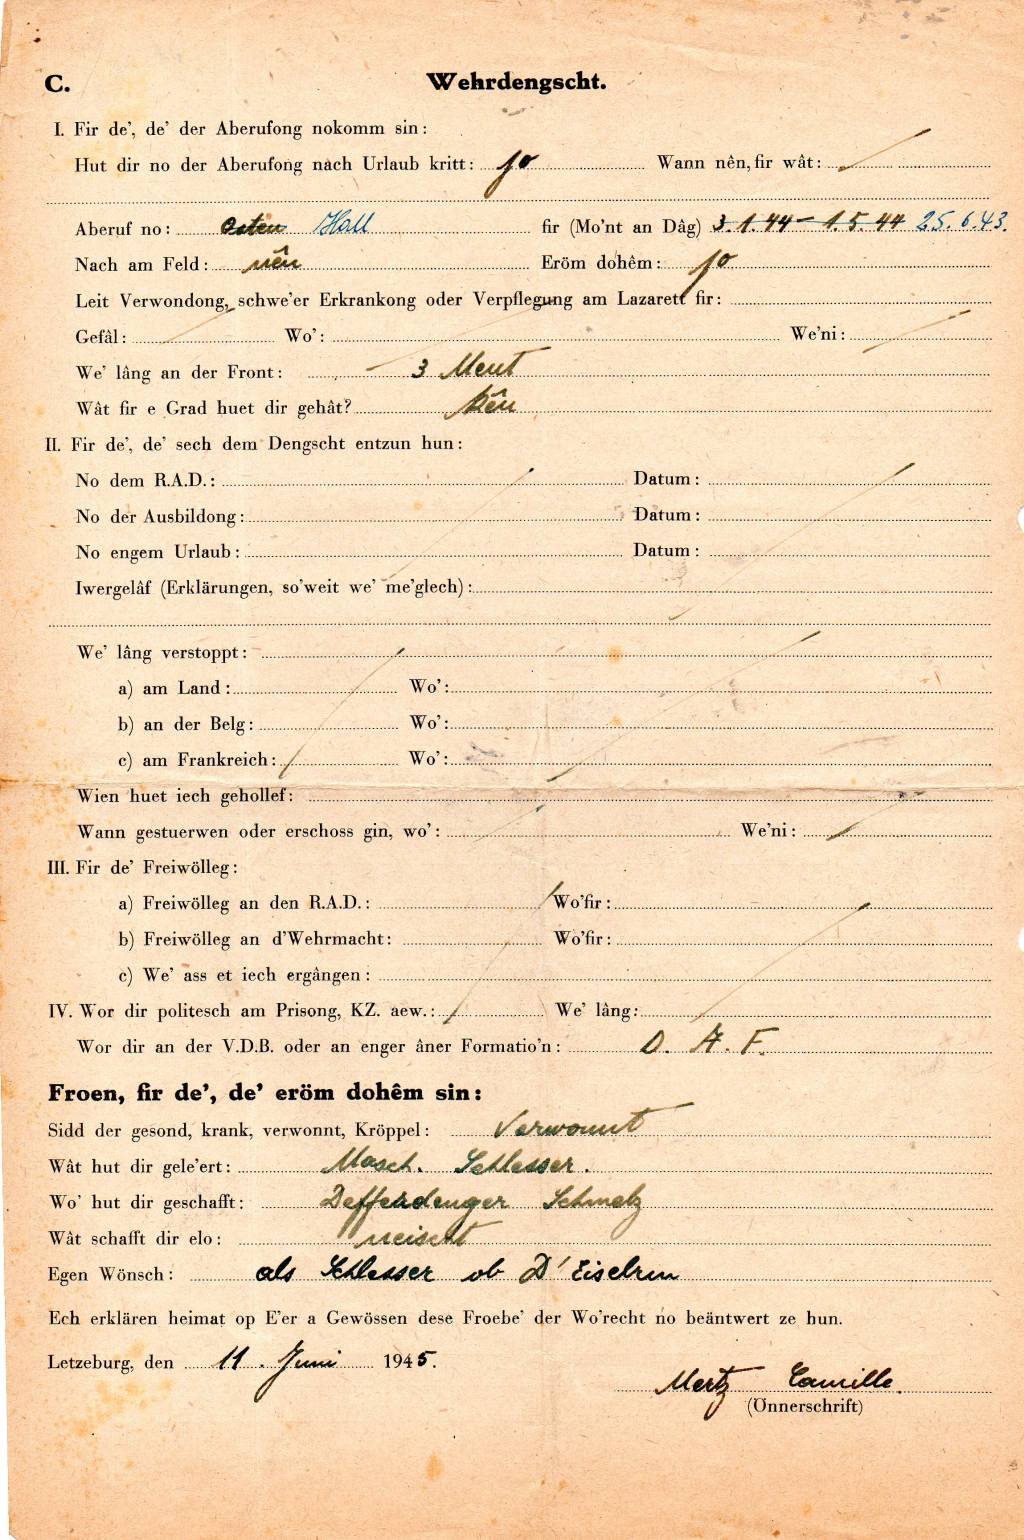 C. Wehrdengscht.
I. Fir de', de' der Aberufong nokomm sin:
Hut dir no der Aberufong nach Urlaub kritt: jo Wann nên, fir wât:
Aberuf no: Osten Hall fir (Mo'nt an Dâg) 3.1.44 - 1.5.44 25.6.43.
Nach am Feld: nên Eröm dohêm: jo
Leit Verwondong, schwe'er Erkrankong oder Verpflegung am Lazarett fir:
Gefâl: Wo': We'ni:
We' lâng an der Front: 3 Meut
Wât fir e Grad huet dir gehât? kên
II. Fir de', de' sech dem Dengscht entzun hun:
No dem R.A.D.: Datum:
No der Ausbildong: Datum:
No engem Urlaub: Datum:
Iwergelâf (Erklärungen, so'weit we' me'glech):
We' lâng verstoppt:
a) am Land: Wo':
b) an der Belg: Wo':
c) am Frankreich: Wo':
Wien huet iech gehollef:
Wann gestuerwen oder erschoss gin, wo': We'ni:
III. Fir de' Freiwölleg:
a) Freiwölleg an den R.A.D.: Wo'fir:
b) Freiwölleg an d'Wehrmacht: Wo'fir:
c) We' ass et iech ergângen:
IV. Wor dir politesch am Prisong, KZ. aew.: We' lâng:
Wor dir an der V.D.B. oder an enger âner Formatio'n: D. A. F.
Froen, fir de', de' eröm dohêm sin:
Sidd der gesond, krank, verwonnt, Kröppel: Verwonnt
Wât hut dir gele'ert: Masch. Schlesser.
Wo' hut dir geschafft: Defferdenger Schmelz
Wât schafft dir elo: neischt
Egen Wönsch: als Schlesser ob D'Eisebunn
Ech erklären heimat op E'er a Gewössen dese Froebe' der Wo'recht no beäntwert ze hun.
Letzeburg, den 11. Juni 1945.
Mertz Camille.
(Önnerschrift)